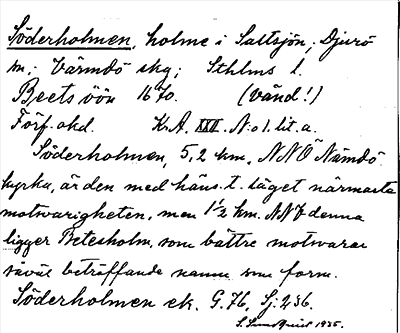 Söderholmen, holme i Saltsjön, Djurö
sn.- Värmdö skg; Sthlms l.
Beets öön 1670. (Vänd!)
Förf. okd. K.A. XXX. N:o 1. lit. a.
Söderholmen, 5,2 km. NNÖ Nämdö
kyrka, är den med häns. t. läget närmasta
motsvarigheten, men 1½ km. NNV denna
ligger Betesholm, som bättre motsvarar
såväl beträffande namn som form.
Söderholmen ek. G. 76, Sj: 236.
S. Sundquist 1935.